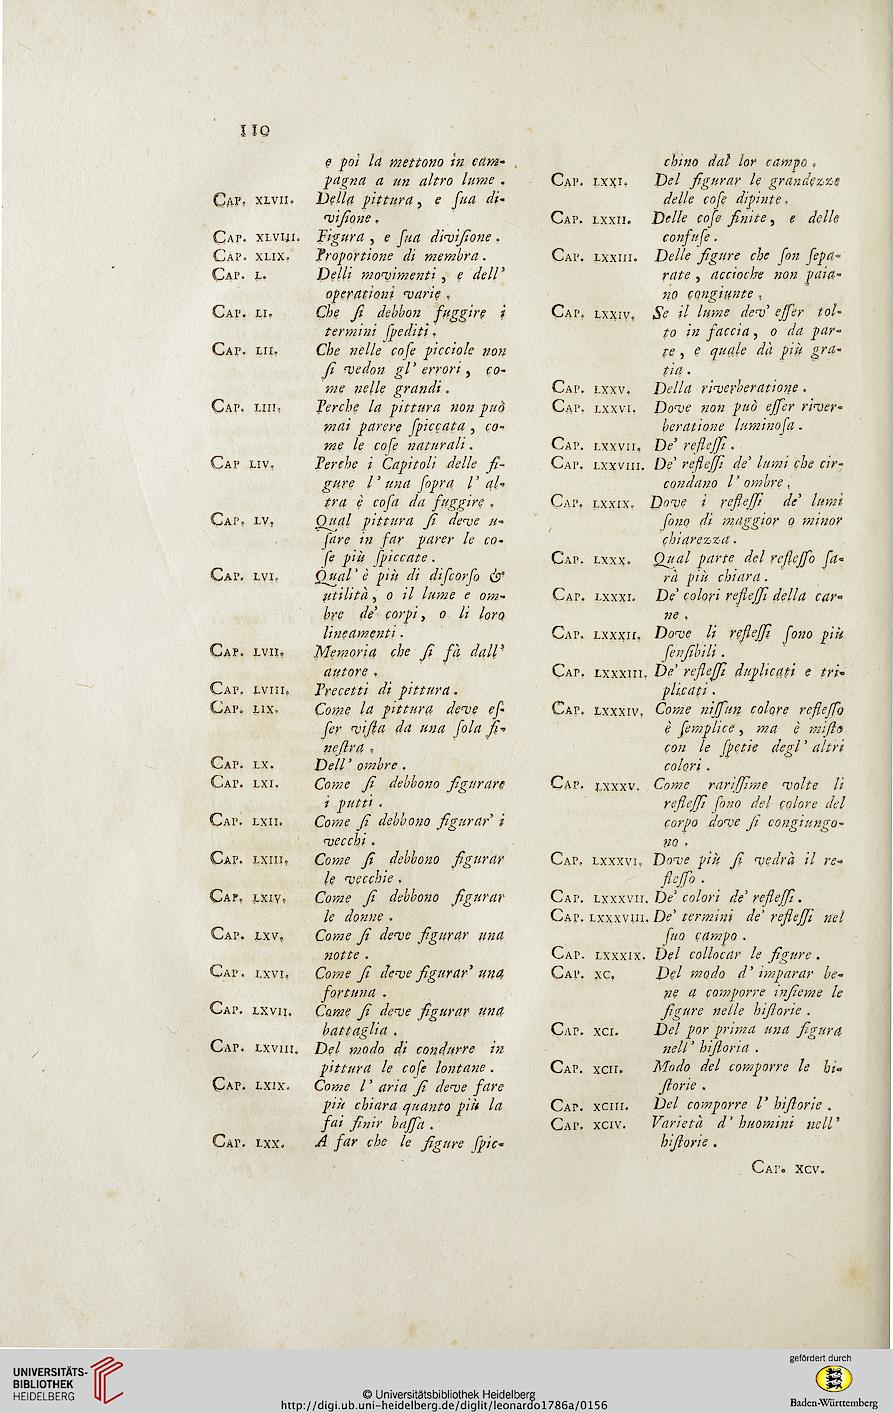 110
e poi la mettono in cam-
pagna a un altro lume .
CAP. XLVII. Della pittura , e ſua di-
viſione .
CAP. XLVIII. Figura , e ſua diviſione .
CAP. XLIX. Proportione di membra .
CAP. L. Delli movimenti , e dell'
operationi varie .
CAP. LI. Che ſi debbon fuggire i
termini ſpediti .
CAP. LII. Che nelle coſe picciole non
ſi vedon gl' errori , co-
me nelle grandi .
CAP. LIII. Perche la pittura non può
mai parere ſpiccata , co-
me le coſe naturali .
CAP LIV. Perche i Capitoli delle fi-
gure l' una ſopra l' al-
tra è coſa da fuggire .
CAP. LV. Qual pittura ſi deve u-
ſare in far parer le co-
ſe più ſpiccate .
CAP. LVI. Qual' è più di diſcorſo &
utilità , o il lume e om-
bre de' corpi , o li loro
lineamenti .
CAP. LVII. Memoria che ſi fà dall'
autore .
CAP. LVIII. Precetti di pittura .
CAP. LIX. Come la pittura deve eſ-
ſer viſta da una ſola fi-
neſtra .
CAP. LX. Dell' ombre .
CAP. LXI. Come ſi debbono figurare
i putti .
CAP. LXII. Come ſi debbono figurar' i
vecchi .
CAP. LXIII. Come ſi debbono figurar
le vecchie .
CAP. LXIV. Come ſi debbono figurar
le donne .
CAP. LXV. Come ſi deve figurar una
notte .
CAP. LXVI. Come ſi deve figurar' una
fortuna .
CAP. LXVII. Come ſi deve figurar una
battaglia .
CAP. LXVIII. Del modo di condurre in
pittura le coſe lontane .
CAP. LXIX. Come l' aria ſi deve fare
più chiara quanto più la
fai finir baſſa .
CAP. LXX. A far che le figure ſpic-
chino dal lor campo .
CAP. LXXI. Del figurar le grandezze
delle coſe dipinte .
CAP. LXXII. Delle coſe finite , e delle
confuſe .
CAP. LXXIII. Delle figure che ſon ſepa-
rate , accioche non paia-
no congiunte .
CAP. LXXIV. Se il lume dev' eſſer tol-
to in faccia , o da par-
te , e quale dà più gra-
tia .
CAP. LXXV. Della riverberatione .
CAP. LXXVI. Dove non può eſſer river-
beratione luminoſa .
CAP. LXXVII. De' refleſſi .
CAP. LXXVIII. De' refleſſi de' lumi che cir-
condano l' ombre .
CAP. LXXIX. Dove i refleſſi de' lumi
ſono di maggior o minor
chiarezza .
CAP. LXXX. Qual parte del refleſſo ſa-
rà più chiara .
CAP. LXXXI. De' colori refleſſi della car-
ne .
CAP. LXXXII. Dove li refleſſi ſono più
ſenſibili .
CAP. LXXXIII. De' refleſſi duplicati e tri-
plicati .
CAP. LXXXIV. Come niſſun colore refleſſo
è ſemplice , ma è miſto
con le ſpetie degl' altri
colori .
CAP. LXXXV. Come rariſſime volte li
refleſſi ſono del colore del
corpo dove ſi congiungo-
no .
CAP. LXXXVI. Dove più ſi vedrà il re-
fleſſo .
CAP. LXXXVII. De' colori de' refleſſi .
CAP. LXXXVIII. De' termini de' refleſſi nel
ſuo campo .
CAP. LXXXIX. Del collocar le figure .
CAP. XC. Del modo d' imparar be-
ne a comporre inſieme le
figure nelle hiſtorie .
CAP. XCI. Del por prima una figura
nell' hiſtoria .
CAP. XCII. Modo del comporre le hi-
ſtorie .
CAP. XCIII. Del comporre l' hiſtorie .
CAP. XCIV. Varietà d' huomini nell'
hiſtorie .
CAP. XCV.
UNIVERSITÄTS-
BIBLIOTHEK
HEIDELBERG
© Universitätsbibliothek Heidelberg
http://digi.ub.uni-heidelberg.de/diglit/leonardo1786a/0156
gefördert durch
Baden-Württemberg